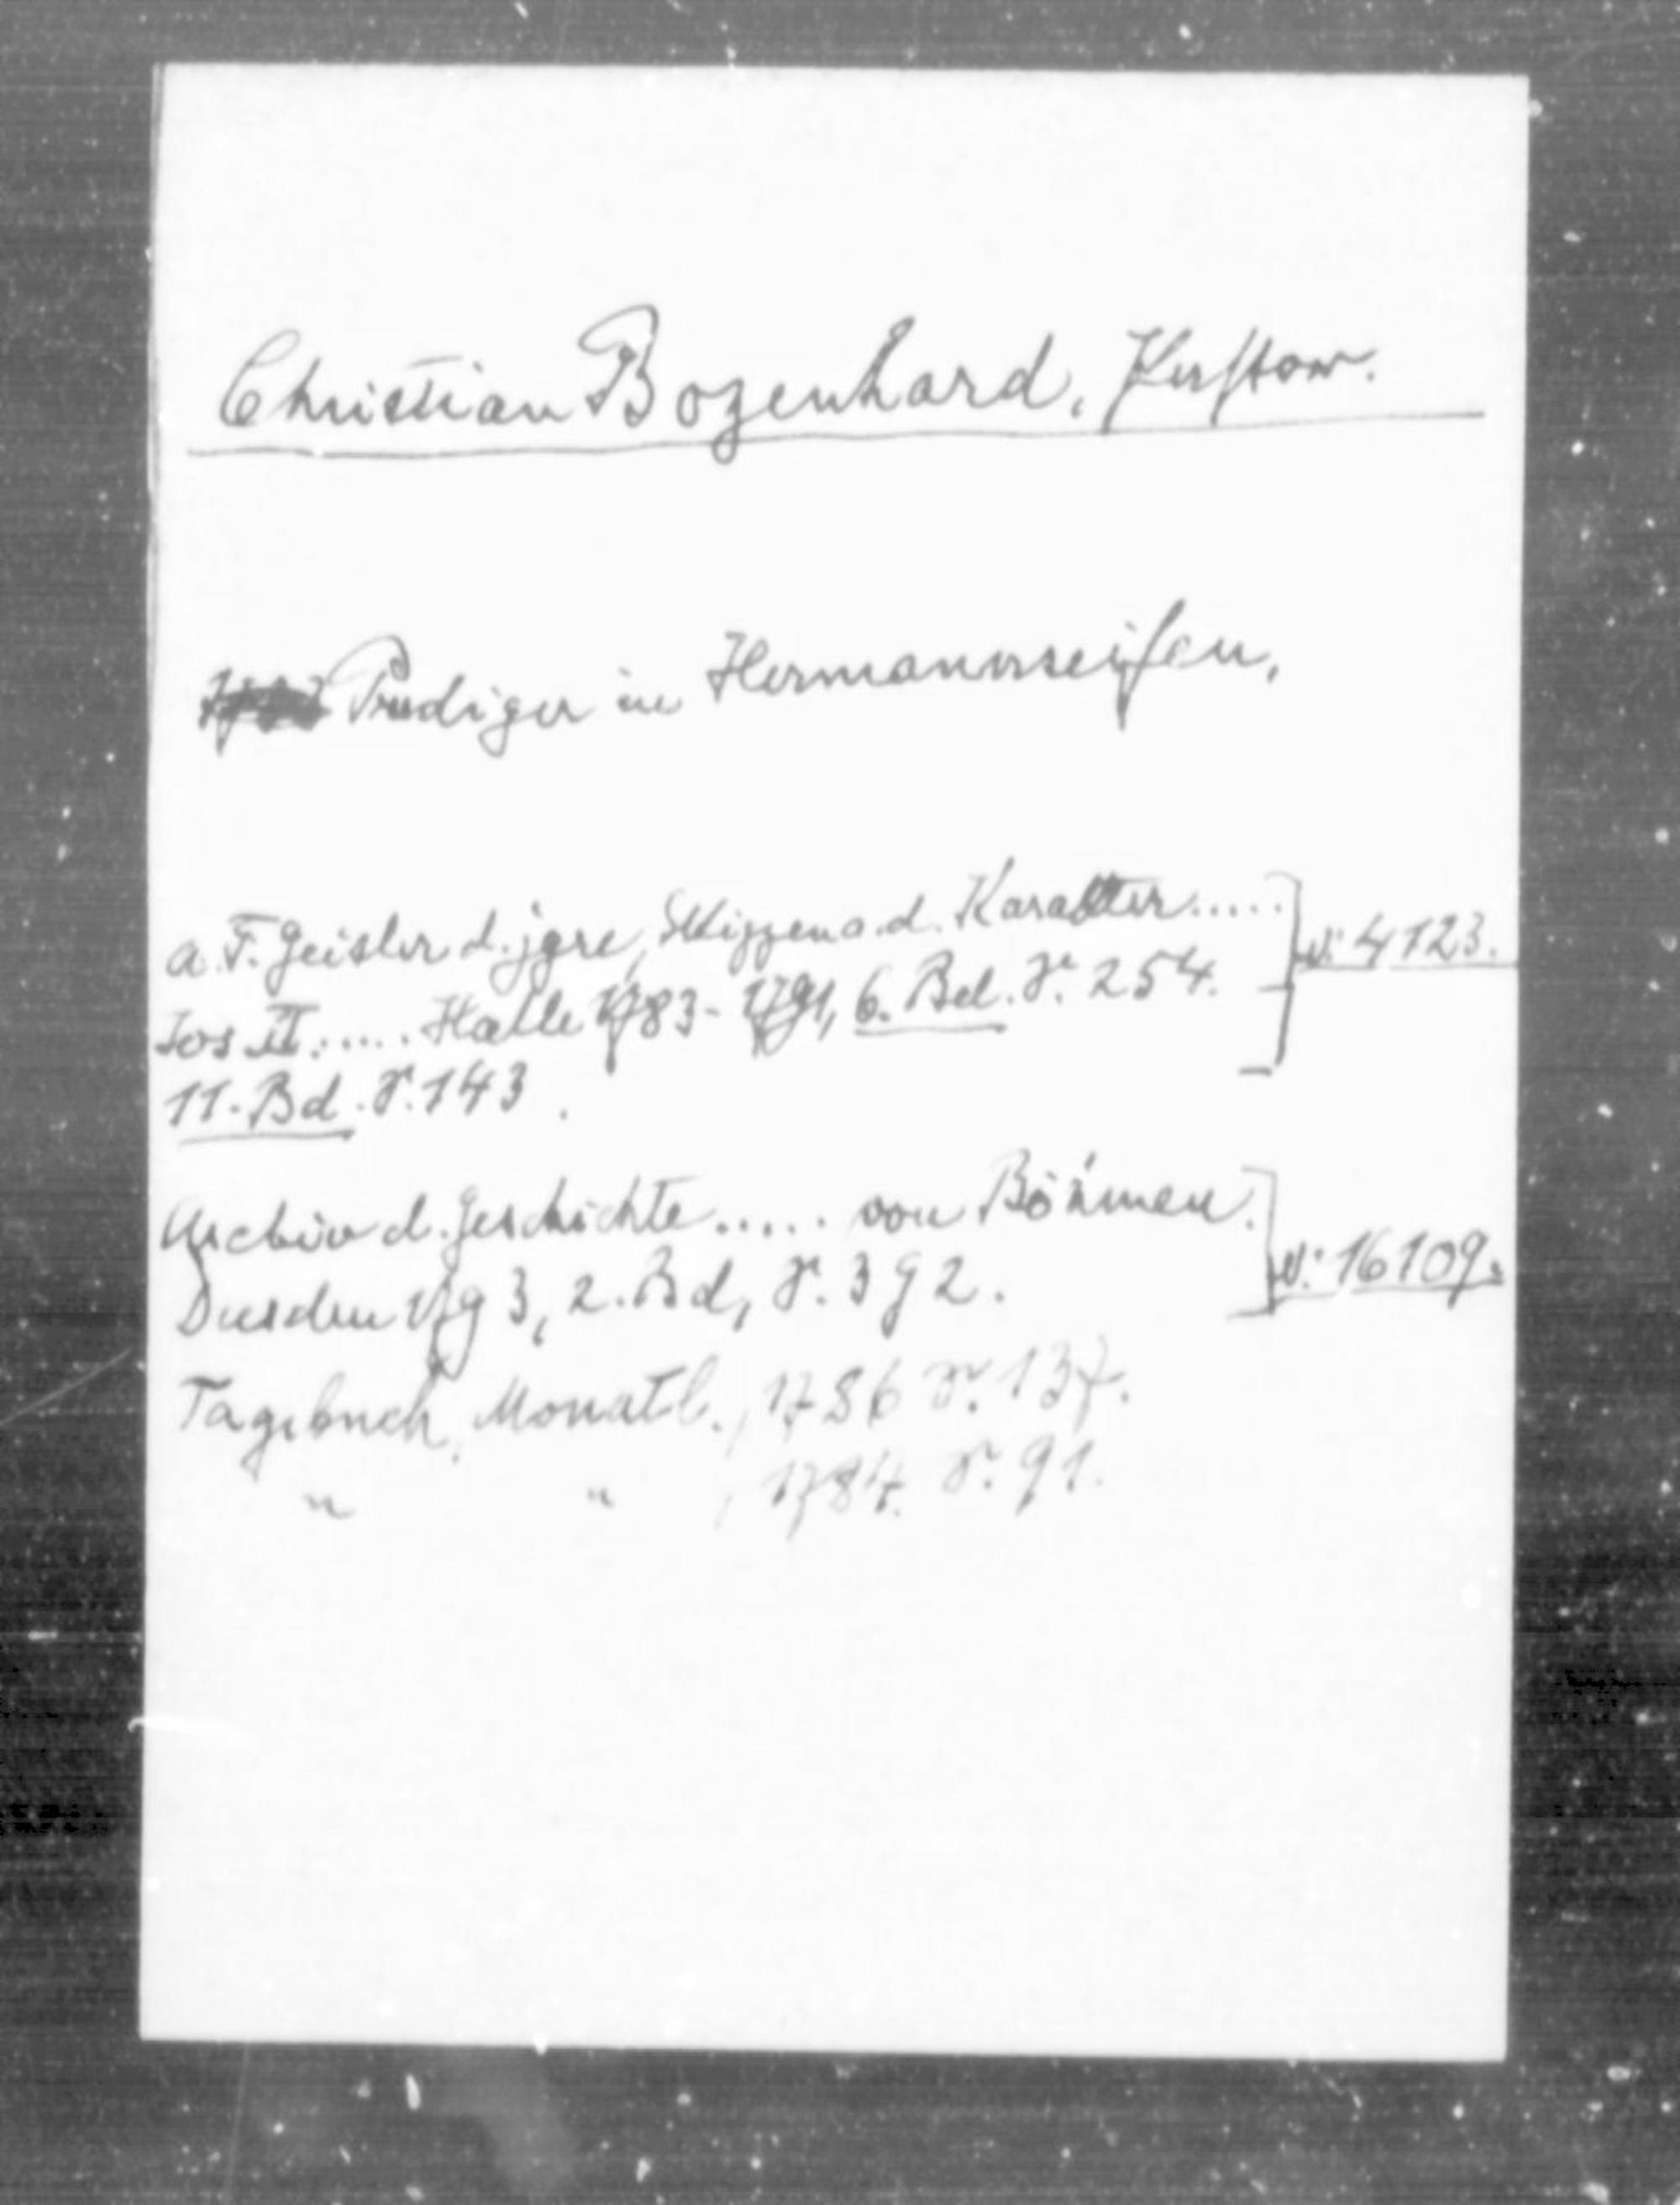 Christian Bozenhard, Pastor.
Prediger in Hermannseifen,
A. F. Geisler d. jgre, Skizzen a. d. Karakter..... ] N: 4123.
Jos II..... Halle 1783-1791, 6. Bd. S. 254.
11. Bd. S. 143.
Archiv d. Geschichte..... von Böhmen. ] N: 16109.
Dresden 1793, 2. Bd, S. 392.
Tagebuch, Monatl., 1786 S. 137.
" " , 1784. S. 91.